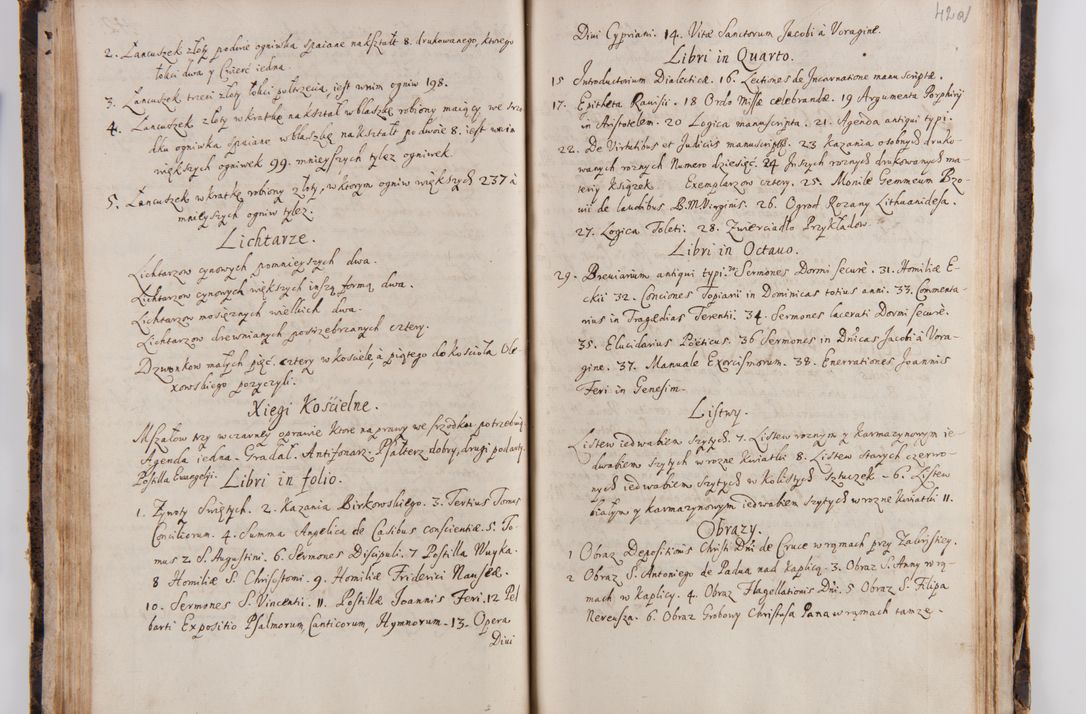 2. Łancuszek złoty podwie ogniwka spaiane nakształt 8. drukowanego, ktorego
łokci dwa y Cwierć iedna.
3. Łancuszek trzeci złoty łokci pułtrzecia, iest wnim ogniw 198.
4. Łancuszek złoty wkratkę nakształt wblaszkę robiony maiący we srzo
dku ogniwka spaiane wblaszkę nakształt po dwoie 8. iest wnim
większych ogniwek 99. mnieyszych tylez ogniwek.
5. Łancuszek wkratkę robiony złoty, w ktorym ogniw większych 237 à
mnieyszych ogniw tylez.
Lichtarze.
Lichtarzow cynowych pomnieyszych dwa.
Lichtarzow cynowych większych inszą formą dwa.
Lichtarzow mosięznych wielkich dwa.
Lichtarzow drewnianych posrzebrzanych cztery.
Dzwonkow małych pięć. cztery w kościele, à piątego do Kościoła Ole-
xowskiego pozyczyli.
Xięgi Kościelne.
Mszałow trzy w czarney oprawie ktore naprawy we srzodku potrzebuią
Agenda iedna. Gradał. Antifonarz. Psałterz dobry, drugi podarty.
Postilla Ewangelij.
Libri in folio.
1. Zywoty Swiętych. 2. Kazania Birkowskiego. 3. Tertius Tomus
Conciliorum. 4. Summa Angelica de Casibus conscientiæ. 5. To-
mus 2. S. Augustini. 6. Sermones Discipuli. 7 Postilla Wuyka.
8 Homiliæ S. Chrisostomi. 9. Homiliæ Friderici Nauseæ.
10. Sermones S. Vincentii. 11. Postillæ Joannis Feri. 12 Pel
barti Expositio Psalmorum, Canticorum, Hymnorum. 13. Opera
Divi
42
Divi Cypriani. 14. Vitæ Sanctorum Jacobi à Voragine.
Libri in Quarto.
15 Introductorium Dialecticæ. 16. Lectiones de Incarnatione manuscriptæ.
17. Epitheta Ravisii. 18 Ordo Missæ celebrandæ. 19 Argumenta Porphirij
in Aristotelem. 20 Logica manuscripta. 21. Agenda antiqui typi.
22. De Virtutibus et Judiciis manuscriptus. 23 Kazania osobnych druko-
wanych roznych Numero dziesięć. 24 Inszych roznych drukowanych ma-
teriy książek Exemplarzow cztery. 25. Monile Gemmeum Bzo-
vii de laudibus B.M.Virginis. 26. Ogrod Rozany Lithuanidesa.
27. Logica Toleti. 28. Zwierciadło Przykładow.
Libri in Octavo.
29. Breviarium antiqui typi. 30 Sermones Dormi Securè. 31. Homiliæ E-
ckii 32. Conciones Topiarii in Dominicas totius anni. 33. Commenta-
rius in Tragœdias Terentii. 34. Sermones lacerati Dormi securè.
35. Elucidarius Poëticus. 36 Sermones in Dnicas Jacobi à Vora-
gine. 37. Manuale Exorcismorum. 38. Enerrationes Joannis
Feri in Genesim.
Listwy.
Listew iedwabiem szytych. 7. Listew roznym y karmazynowym ie-
dwabiem szytych w rozne Kwiatki 8. Listew starych czerwo-
nych iedwabiem szytych w kolistych Sztuczek – 6. Listew
białym y karmazynowym iedwabiem szytych w rozne kwiatki 11.
Obrazy.
1 Obraz Depositionis Christi Dni de Cruce w ramach przy Zalinskiey.
2 Obraz S. Antoniego de Padua nad kaplicą. 3. Obraz S. Anny w ra-
mach w kaplicy. 4. Obraz Flagellationis Dni. 5 Obraz S. Filipa
Nereusza. 6. Obraz Grobowy Christusa Pana w ramach tamze.